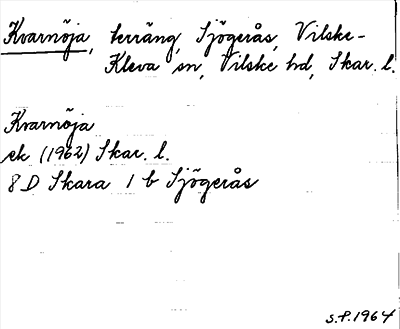 Kvarnöja, terräng, Sjögerås, Vilske-
Kleva sn, Vilske hd, Skar. l.
Kvarnöja
ek (1962) Skar. l.
8 D Skara 1 b Sjögerås
S.P. 1964